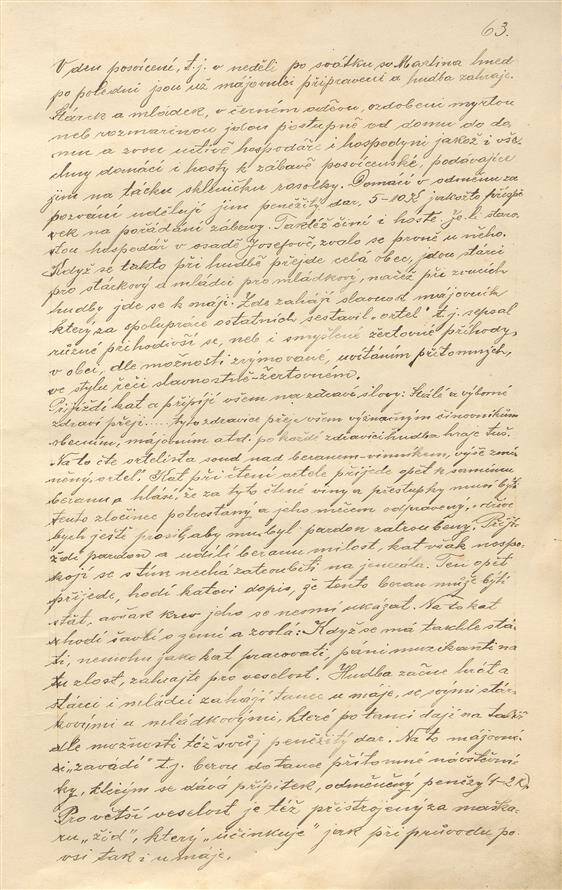 63.
V den posvícení, t.j. v neděli po svátku sv. Martina hned
po poledni jsou už májovníci připraveni a hudba zahraje.
Stárek a mládek, v černém oděvu, ozdobeni myrtou
neb rozmarinou jdou postupně od domu do do-
mu a zvou uctivě hospodáře i hospodyni jakož i vše-
chny domácí i hosty k zábavě posvícenské, podávajíce
jim na tácku skleničku rosolky. Domácí v odměnu za
pozvání udělují jim peněžitý dar, 5-10 K jakožto příspě-
vek na pořádání zábavy. Taktéž činí i hosté. Je-li staro-
stou hospodář v osadě Josefově, zvalo se prvně u něho.
Když se takto při hudbě přejde celá obec, jdou stárci
pro stárkový a mládci pro mládkový, načež při zvucích
hudby jde se k máji. Zde zahájí slavnost májovník
který za spolupráce ostatních sestavil „ortel" t.j. sepsal
různé přihodivší se, neb i smyšlené žertovné příhody,
v obci, dle možnosti zrýmované, uvítáním přítomných,
ve stylu řeči slavnostně-žertovném.
Přijíždí kat a připíjí všem na zdraví slovy: Stálé a výborné
zdraví přeji..... tyto zdravice přeje všem význačným činovníkům
obecním, májovním atd. po každé zdravici hudba hraje tuš.
Na to čte ortelista soud nad beranem-vinníkem, výše zmí-
něný „ortel". Kat při čtení ortele přijede opět k samému
beranu a hlásí, že za tyto čtené viny a přestupky musí býti
tento zločinec potrestaný a jeho mečem odpravený, „dříve
bych ještě prosil, aby mu byl pardon zatroubený." Přijí-
ždí pardon a udělí beranu milost, kat však nespo-
kojí se s tím nechá zatroubiti na jenerála. Ten opět
přijede, hodí katovi dopis, že tento beran může býti
stát, avšak krev jeho se nesmí ukázat. Na to kat
hodí šavli o zemi a zvolá: Když se má takhle stá-
ti, nemohu jako kat pracovati, páni muzikanti na
tu zlost, zahrajte pro veselost. Hudba začne hrát a
stárci i mládci zahájí tanec u máje, se svými stár-
kovými a mládkovými, které po tanci dají na talíř
dle možnosti též svůj peněžitý dar. Na to májovní-
ci „zavádí" t.j. berou do tance přítomné návštěvni-
ky, kterým se dává přípitek, odměněný penězy (1-2 K).
Pro větší veselost je též přistrojený za maška-
ru „žid", který „účinkuje" jak při průvodu po
vsi tak i u máje.